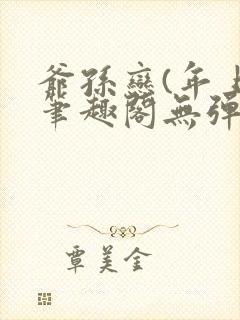 爺孫戀(年上
筆趣閣無彈
覃美金